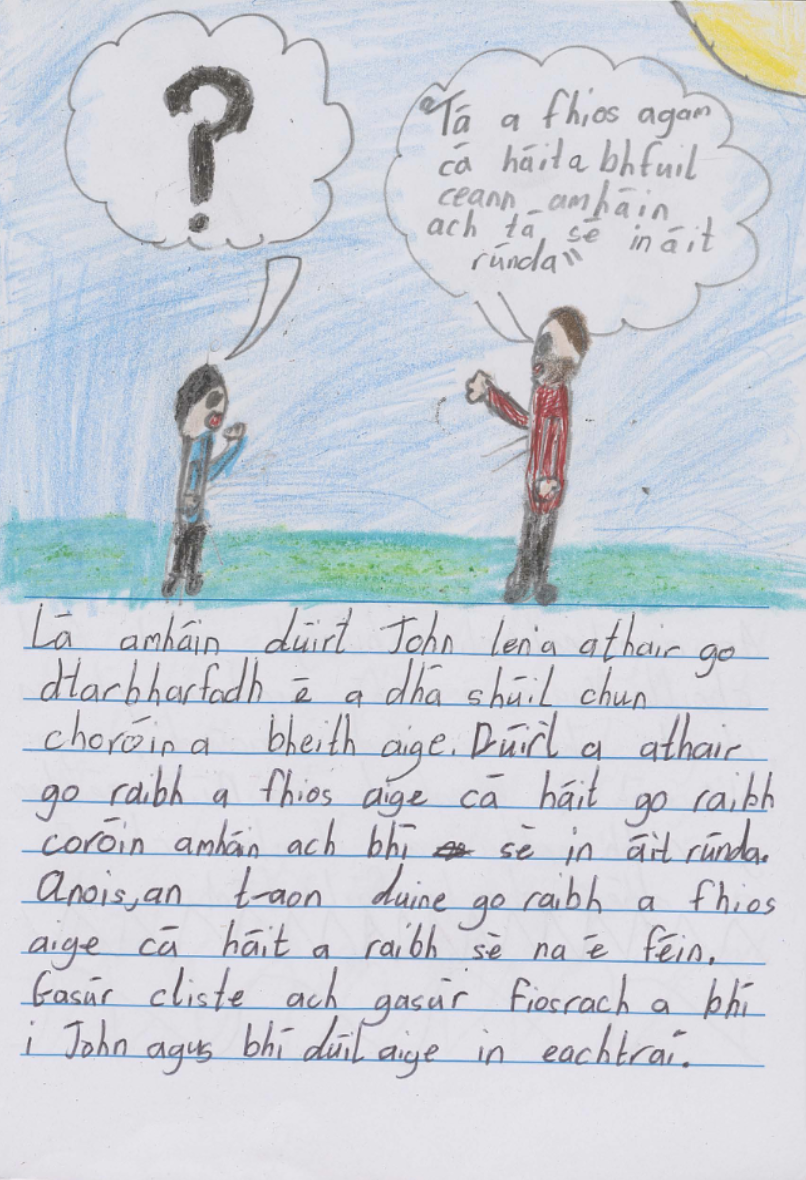 ?
"Tá a fhios agam
cá háit a bhfuil
ceann amháin
ach tá sé in áit
rúnda"
Lá amháin dúirt John lena athair go
dtarbharfadh é a dhá shúil chun
choróin a bheith aige. Dúirt a athair
go raibh a fhios aige cá háit go raibh
coróin amhán ach bhí sé in áit rúnda.
Anois, an t-aon duine go raibh a fhios
aige cá háit a raibh sé na é féin.
Gasúr cliste ach gasúr fiosrach a bhí
i John agus bhí dúil aige in eachtraí.